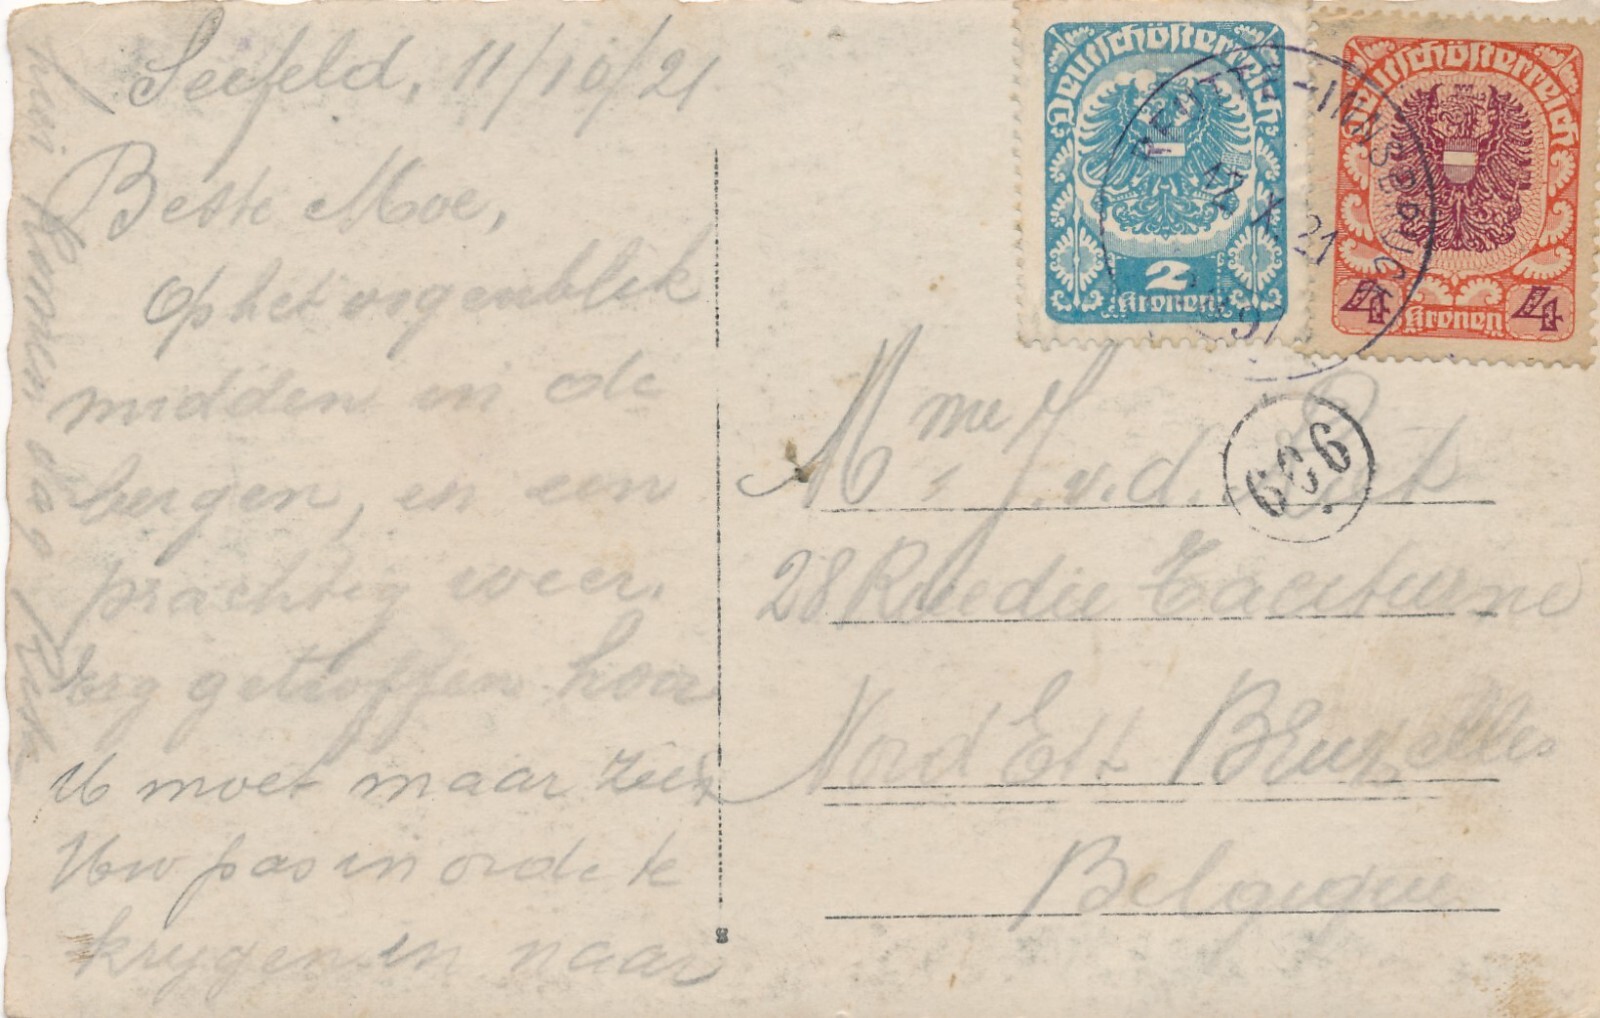 Seefeld, 11/10/21
Beste Moe,
Op het oogenblik
midden in de
bergen, en een
prachtig weer.
getroffen hoor
U moet maar zien
Uw pas in orde te
krygen en naar
hui komen dag
Deutschösterreich
2
Kronen
Deutschösterreich
4 Kronen 4
REUTTE-INNSBRUCK
12 X 21
606
Mme J. v. d.
28 Rue die Taciturne
Nord Est Bruxelles
Belgique
8